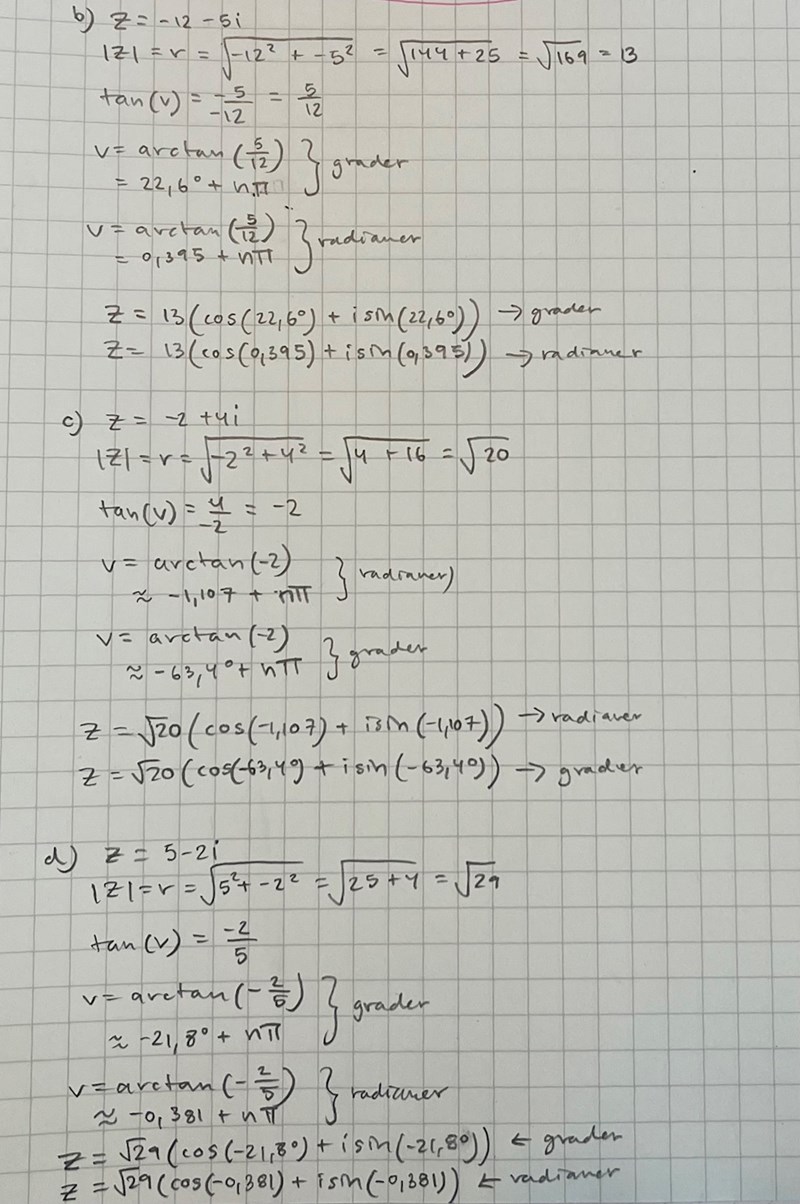 b) z = -12 - 5i
|z| = r = √(-12² + -5²) = √(144+25) = √169 = 13
tan(v) = -5/-12 = 5/12
v = arctan(5/12) } grader
= 22,6° + nπ
v = arctan(5/12) } radianer
= 0,395 + nπ
z = 13(cos(22,6°) + i sin(22,6°)) → grader
z = 13(cos(0,395) + i sin(0,395)) → radianer
c) z = -2 + 4i
|z| = r = √(-2² + 4²) = √(4 + 16) = √20
tan(v) = 4/-2 = -2
v = arctan(-2) } radianer)
≈ -1,107 + nπ
v = arctan(-2) } grader
≈ -63,4° + nπ
z = √20 (cos(-1,107) + i sin(-1,107)) → radianer
z = √20 (cos(-63,4°) + i sin(-63,4°)) → grader
d) z = 5 - 2i
|z| = r = √(5² + -2²) = √(25 + 4) = √29
tan(v) = -2/5
v = arctan(-2/5) } grader
≈ -21,8° + nπ
v = arctan(-2/5) } radianer
≈ -0,381 + nπ
z = √29 (cos(-21,8°) + i sin(-21,8°)) ← grader
z = √29 (cos(-0,381) + i sin(-0,381)) ← radianer